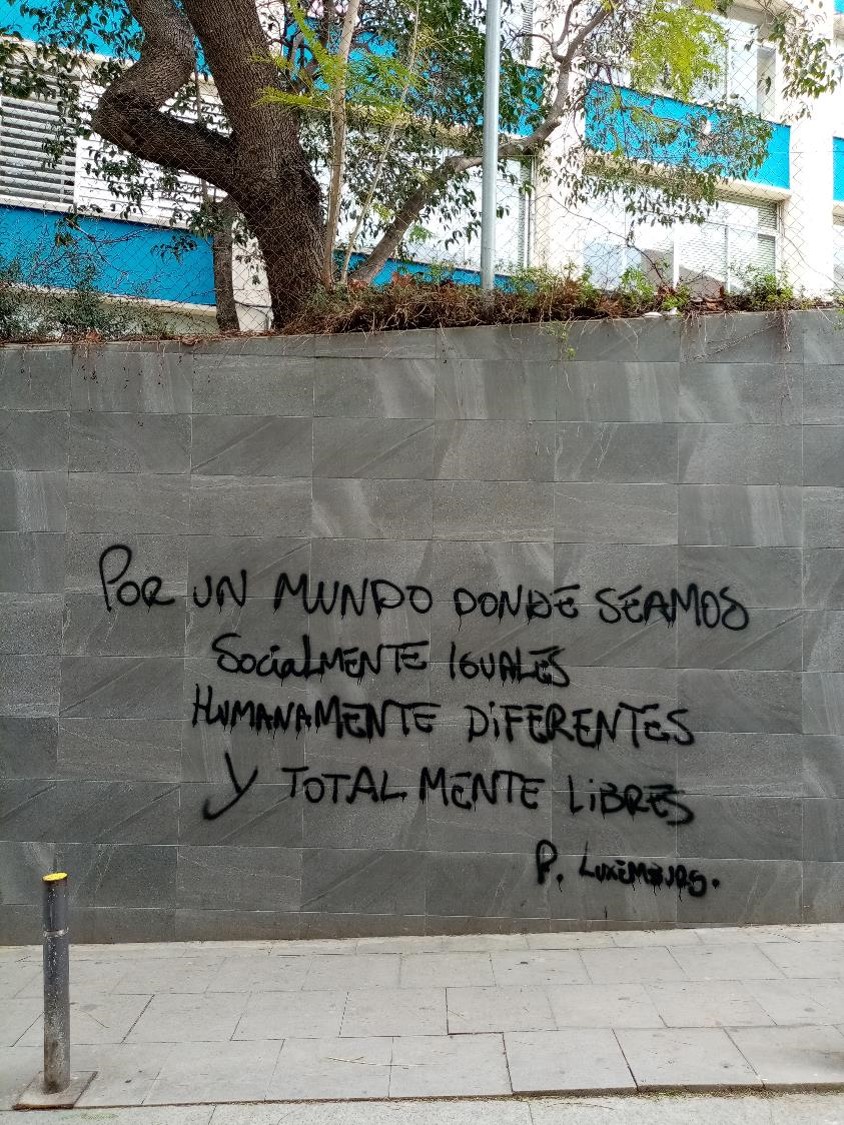 POR UN MUNDO DONDE SEAMOS
SociaLMENTE IGUALES
HUMANAMENTE DiFERENTES
Y TOTALMENTE LiBRES
P. LUXEMBURG.